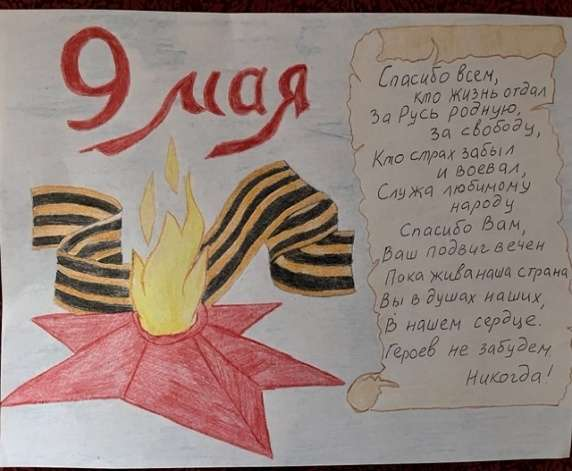 9 мая
Спасибо всем,
кто жизнь отдал
За Русь родную,
за свободу,
Кто страх забыл
и воевал,
Служа любимому
народу
Спасибо Вам,
Ваш подвиг вечен
Пока жива наша страна
Вы в душах наших,
В нашем сердце.
Героев не забудем
Никогда!